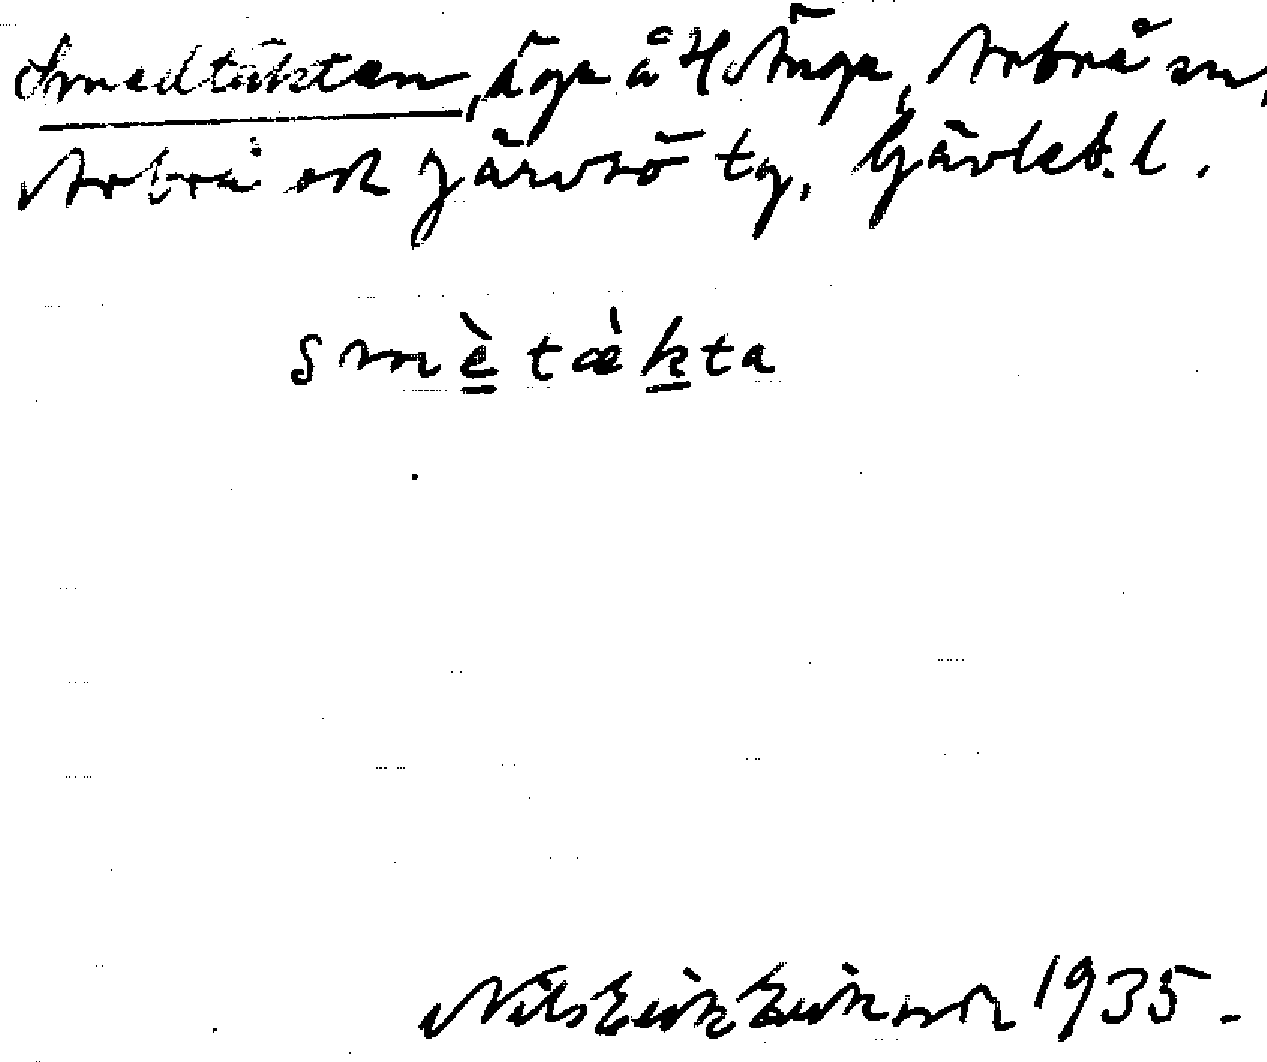 Smedtäkten, äga å 4 Änga, Arbrå sn,
Arbrå och Järvsö tg, Gävleb. l.
smètæ̀kta
Nils Erik Eriksson 1935.